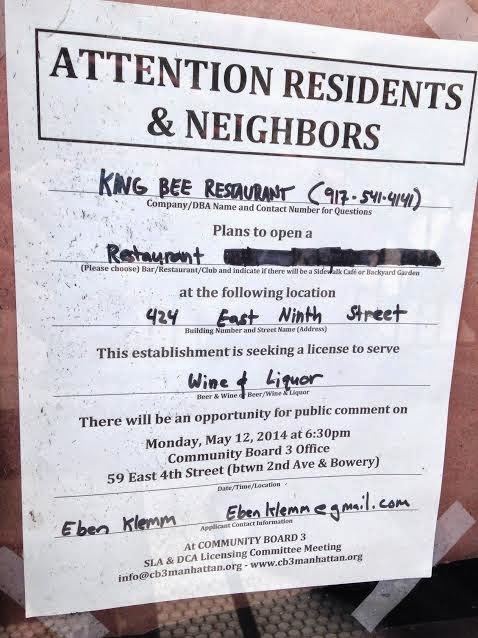 ATTENTION RESIDENTS
& NEIGHBORS
KING BEE RESTAURANT (917-541-4141)
Company/DBA Name and Contact Number for Questions
Plans to open a
Restaurant
(Please choose) Bar/Restaurant/Club and indicate if there will be a Sidewalk Café or Backyard Garden
at the following location
424 East Ninth Street
Building Number and Street Name (Address)
This establishment is seeking a license to serve
Wine & Liquor
Beer & Wine or Beer/Wine & Liquor
There will be an opportunity for public comment on
Monday, May 12, 2014 at 6:30pm
Community Board 3 Office
59 East 4th Street (btwn 2nd Ave & Bowery)
Date/Time/Location
Eben Klemm Ebenklemm@gmail.com
Applicant Contact Information
At COMMUNITY BOARD 3
SLA & DCA Licensing Committee Meeting
info@cb3manhattan.org - www.cb3manhattan.org